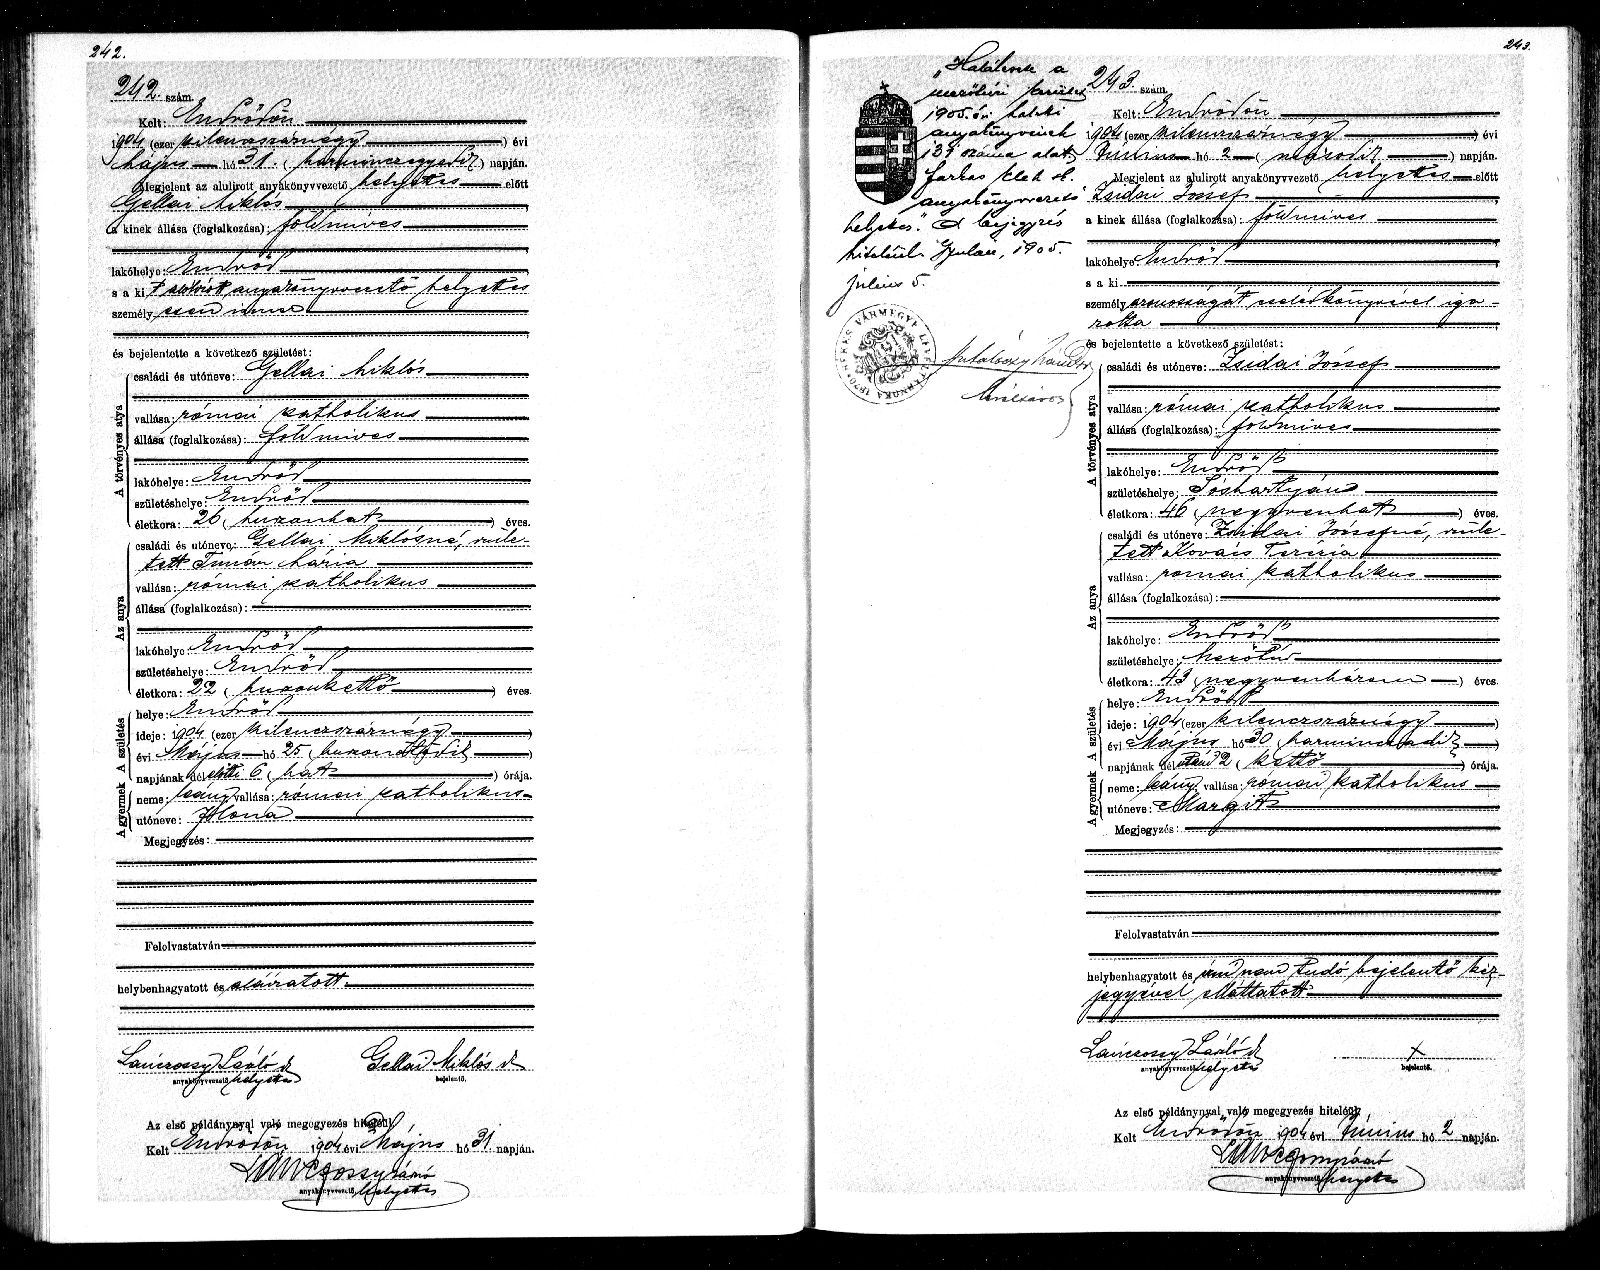 242.
242. szám.
Kelt: Endrődön
1904 (ezer kilenczszáznégy) évi
május hó 31. (harminczegyedik) napján.
Megjelent az alulirott anyakönyvvezető helyettes előtt
Gellai Miklós
a kinek állása (foglalkozása): földmives
lakóhelye: Endrőd
s a kit alulirott anyakönyvvezető helyettes
személyesen ismer
és bejelentette a következő születést:
A törvényes atya
családi és utóneve: Gellai Miklós
vallása: római katholikus
állása (foglalkozása): földmives
lakóhelye: Endrőd
születéshelye: Endrőd
életkora: 26 (huszonhat) éves.
Az anya
családi és utóneve: Gellai Miklósné, szüle-
tett Timár Mária
vallása: római katholikus
állása (foglalkozása):
lakóhelye: Endrőd
születéshelye: Endrőd
életkora: 22 (huszonkettő) éves.
A születés
helye: Endrőd
ideje: 1904 (ezer kilenczszáznégy)
évi Május hó 25 (huszonötödik)
napjának délelőtti 6 (hat) órája.
A gyermek
neme: leány vallása: római katholikus
utóneve: Ilona
Megjegyzés:
Felolvastatván
helybenhagyatott és aláiratott.
Lánczossy László
anyakönyvvezető helyettes
Gellai Miklós
bejelentő.
Az első példánynyal való megegyezés hiteléül:
Kelt Endrődön 1904 évi Május hó 31 napján.
anyakönyvvezető helyettes
243.
"Halálesete a
mezőtúri kerület
1905. évi halotti
anyakönyvének
137 száma alatt
Farkas Elek sk.
anyakönyvvezető
helyettes." A bejegyzés
hiteléül Gyulán, 1905.
július 5.
BÉKÉS VÁRMEGYE LEVÉLTÁRNOKA 1870
243. szám.
Kelt: Endrődön
1904 (ezer kilenczszáznégy) évi
Június hó 2 (második) napján.
Megjelent az alulirott anyakönyvvezető helyettes előtt
Zsidai József
a kinek állása (foglalkozása): földmives
lakóhelye Endrőd
s a ki
személyazonosságát cselédkönyvével iga-
zolta
és bejelentette a következő születést:
A törvényes atya
családi és utóneve: Zsidai József
vallása: római katholikus
állása (foglalkozása): földmives
lakóhelye: Endrőd
születéshelye: Sóshartyán
életkora: 46 (negyvenhat) éves.
Az anya
családi és utóneve: Zsidai Józsefné, szüle-
tett Kovács Terézia
vallása: római katholikus
állása (foglalkozása):
lakóhelye: Endrőd
születéshelye: Mezőtúr
életkora: 43 (negyvenhárom) éves.
A születés
helye: Endrőd
ideje: 1904 (ezer kilenczszáznégy)
évi Május hó 30 (harminczadik)
napjának délutáni 2 (kettő) órája.
A gyermek
neme: leány vallása: római katholikus
utóneve: Margit
Megjegyzés:
Felolvastatván
helybenhagyatott és irni nem tudó bejelentő kéz-
jegyével elláttatott
Lánczossy László
anyakönyvvezető helyettes
x
bejelentő.
Az első példánynyal való megegyezés hiteléül:
Kelt Endrődön 1904 évi Június hó 2 napján.
anyakönyvvezető helyettes